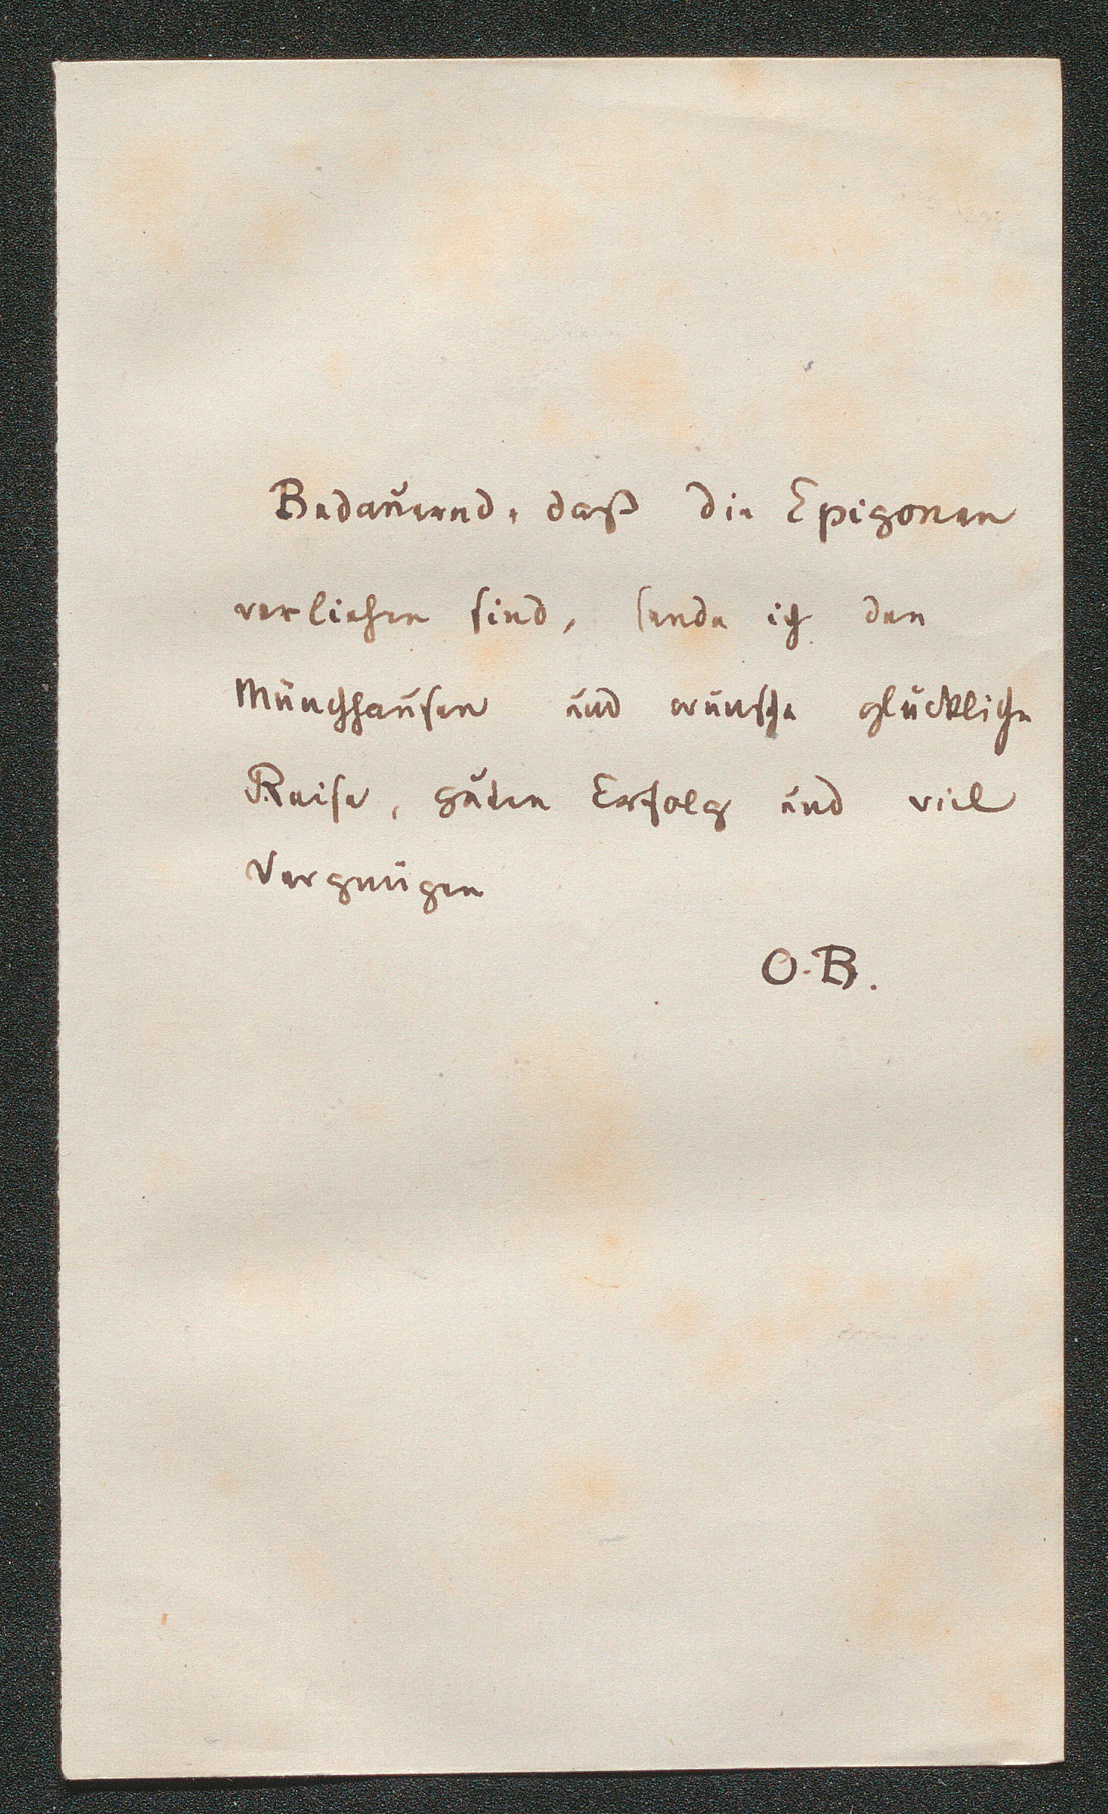 Bedauernd, daß die Epigonen
verliehen sind, sende ich den
Münchhausen und wünsche glückliche
Reise, guten Erfolg und viel
Vergnügen
O. B.